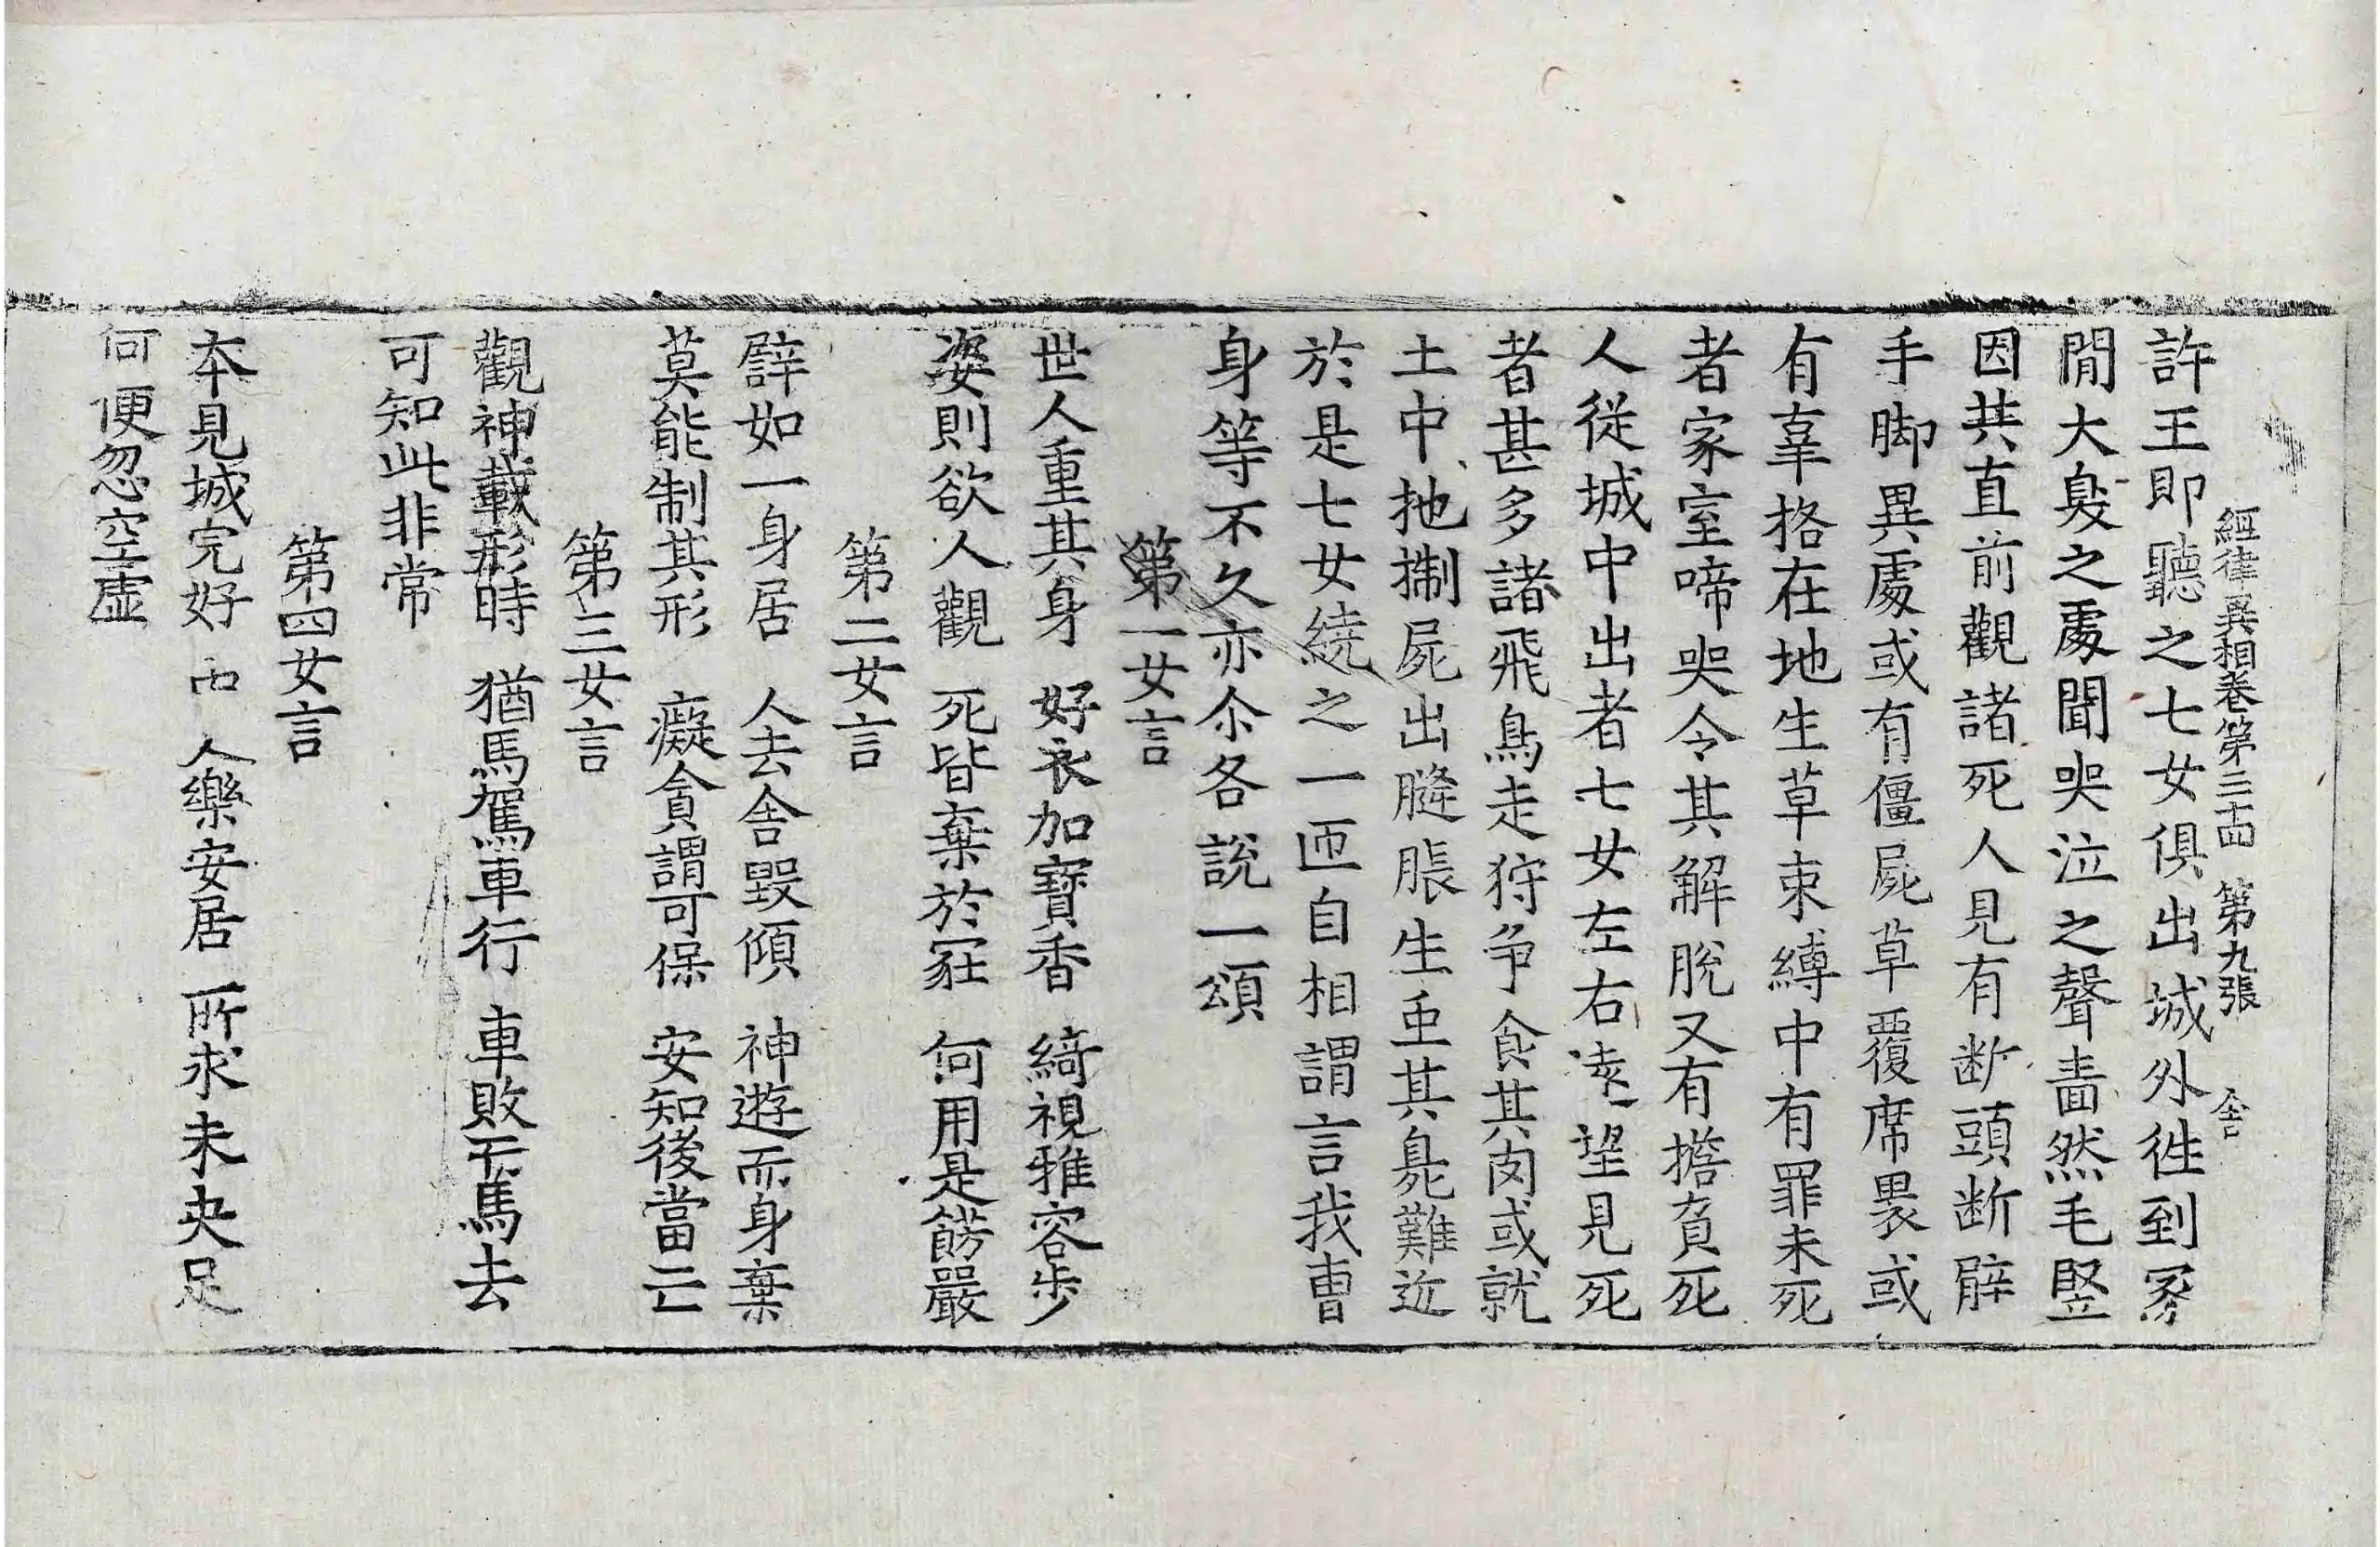 經律異相卷第三十四 第九張 舍
許王即聽之七女俱出城外徃到冢
閒大臭之處聞哭泣之聲啚然毛竪
因共直前觀諸死人見有断頭断臂
手脚異處或有僵屍草覆席褁或
有辜格在地生草束縛中有罪未死
者家室啼哭令其解脫又有擔負死
人從城中出者七女左右遠望見死
者甚多諸飛鳥走狩争食其肉或就
土中抴掣屍出膖脹生虫其臭難近
於是七女繞之一匝自相謂言我曹
身等不久亦尒各說一頌
第一女言
世人重其身 好衣加寶香 綺視雅容步
姿則欲人觀 死皆棄於冢 何用是餝嚴
第二女言
譬如一身居 人去舍毀傾 神遊而身棄
莫能制其形 癡貪謂可保 安知後當亡
第三女言
觀神載形時 猶馬駕車行 車敗而馬去
可知此非常
第四女言
本見城完好 中人樂安居 所求未央足
何便忽空虛